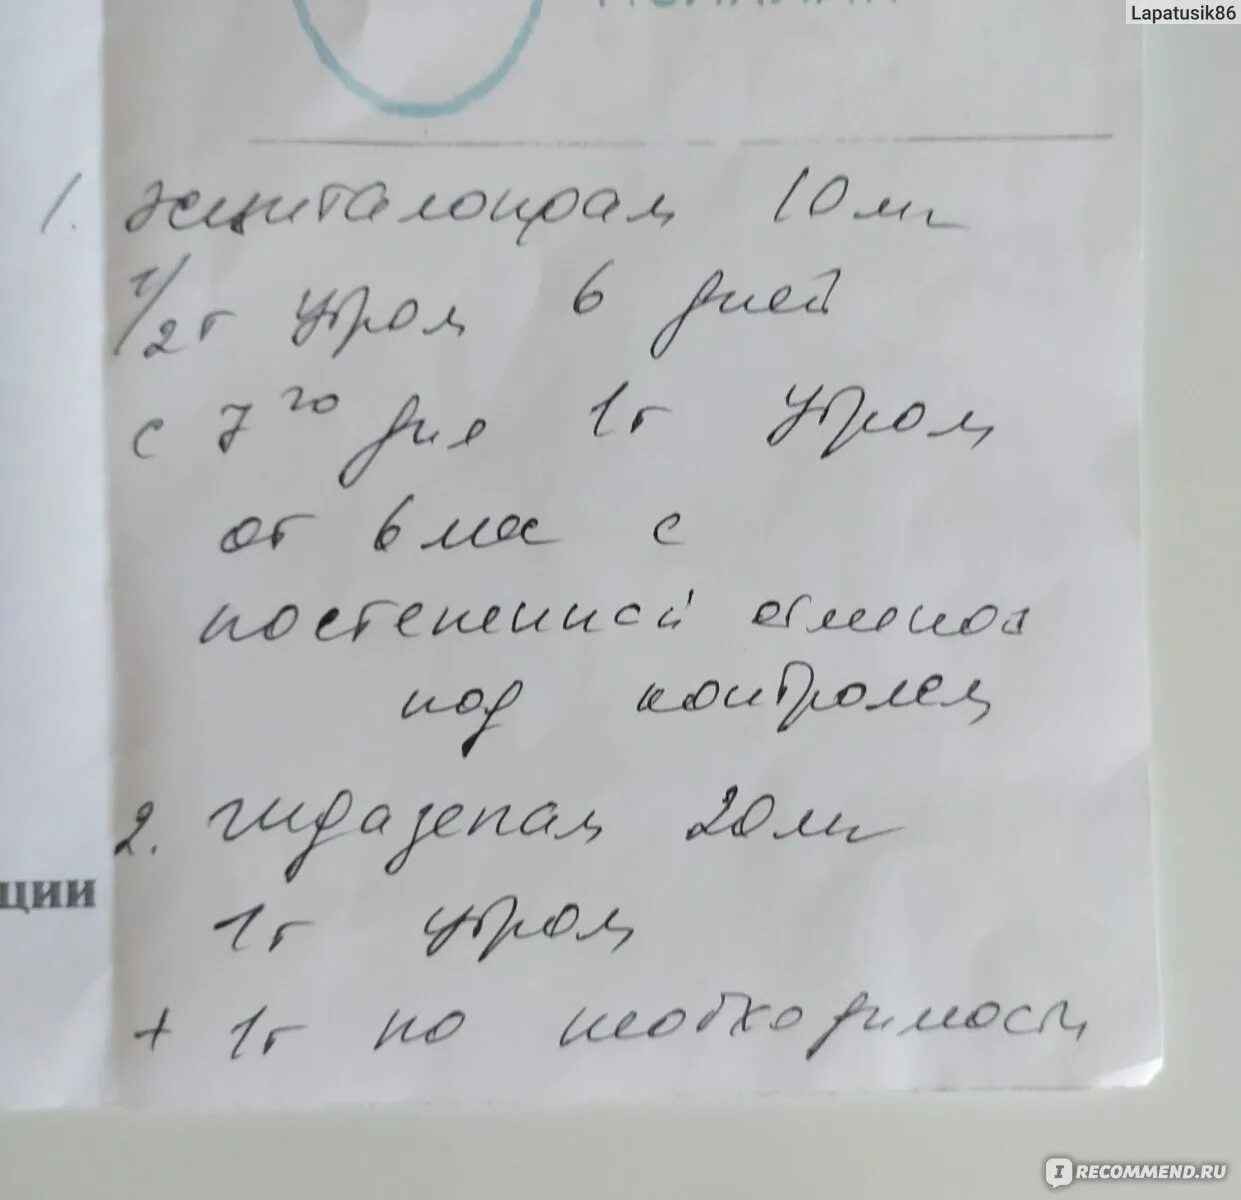 Lapatusik86
1. Эсциталопрам 10мг
1/2т утром 6 дней
с 7го дня 1т утром
от 6 мес с
постепенной отменой
под контролем
2. гидазепам 20мг
ции
1т утром
+ 1т по необходимости
IRECOMMEND.RU